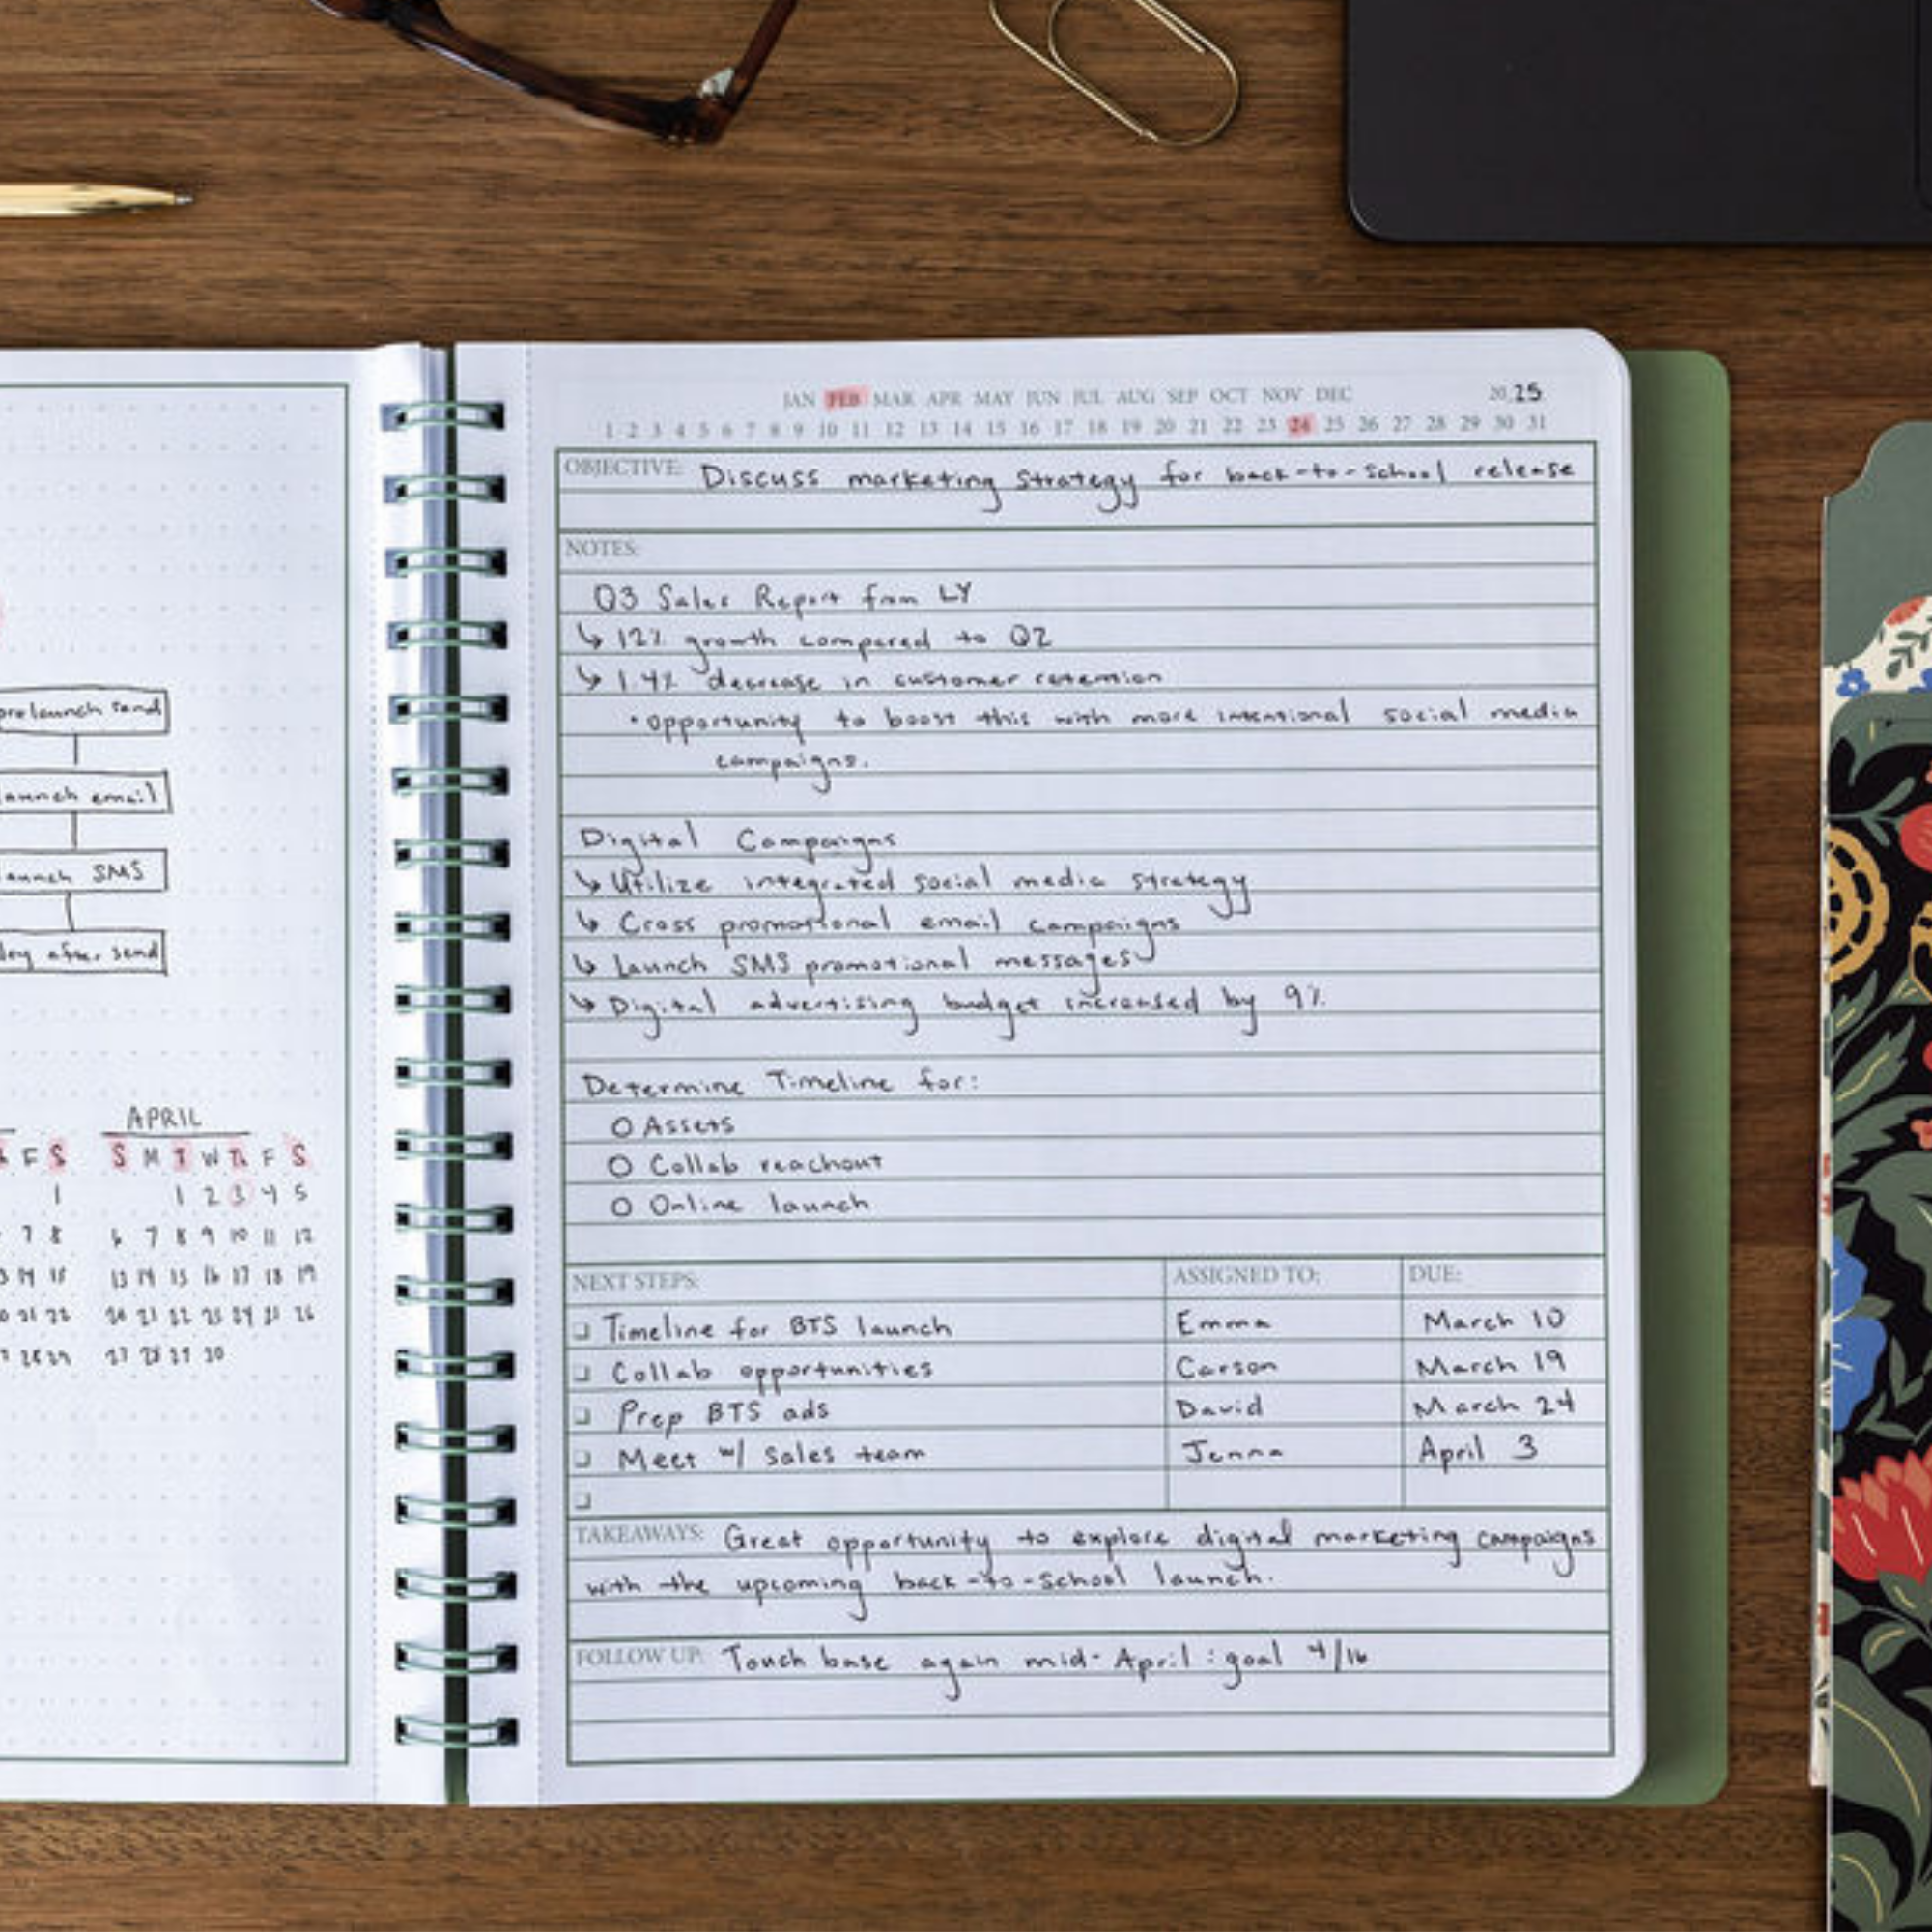 prelaunch send
aunch email
aunch SMS
after send
F S
1
7 8
14 15
21 22
28 29
APRIL
S M T W Th F S
1 2 3 4 5
6 7 8 9 10 11 12
13 14 15 16 17 18 19
20 21 22 23 24 25 26
27 28 29 30
JAN FEB MAR APR MAY JUN JUL AUG SEP OCT NOV DEC 2025
1 2 3 4 5 6 7 8 9 10 11 12 13 14 15 16 17 18 19 20 21 22 23 24 25 26 27 28 29 30 31
OBJECTIVE: Discuss marketing Strategy for back-to-school release
NOTES:
Q3 Sales Report from LY
↳ 12% growth compared to Q2
↳ 1.4% decrease in customer retention
• opportunity to boost this with more intentional social media
campaigns.
Digital Campaigns
↳ Utilize integrated social media strategy
↳ Cross promotional email campaigns
↳ Launch SMS promotional messages
↳ Digital advertising budget increased by 9%
Determine Timeline for:
O Assets
O Collab reachout
O Online launch
NEXT STEPS: ASSIGNED TO: DUE:
Timeline for BTS launch Emma March 10
Collab opportunities Carson March 19
Prep BTS ads David March 24
Meet w/ Sales team Jenna April 3
TAKEAWAYS: Great opportunity to explore digital marketing campaigns
with the upcoming back-to-school launch.
FOLLOW UP: Touch base again mid-April: goal 4/16